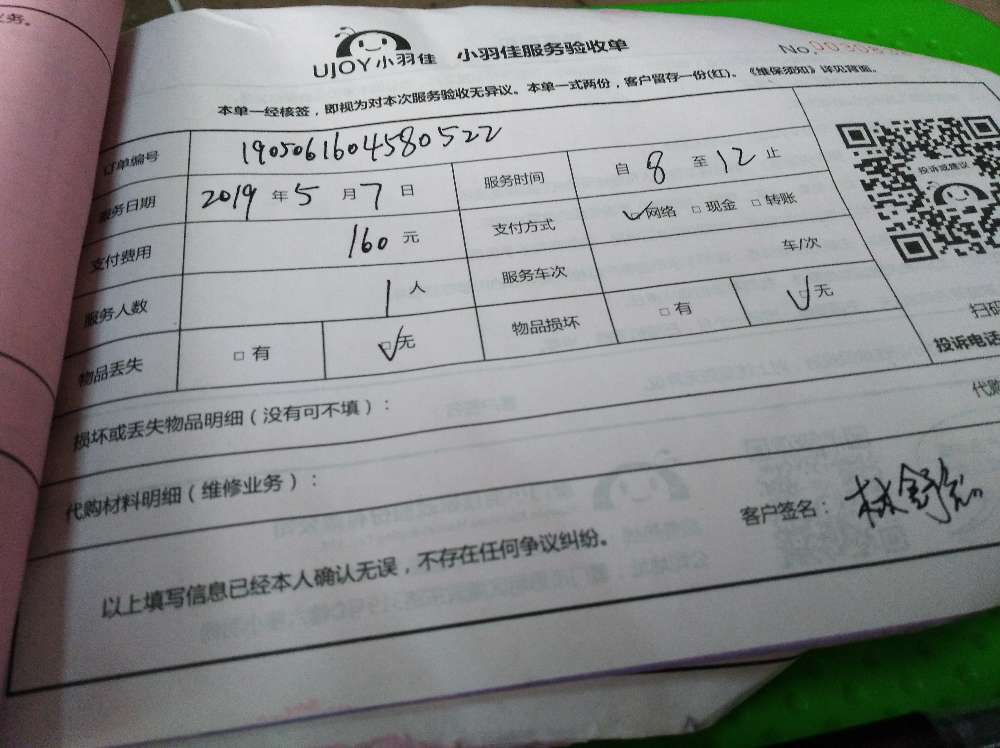 务。
UJOY小羽佳 小羽佳服务验收单
No.
本单一经核签，即视为对本次服务验收无异议。本单一式两份，客户留存一份(红)、《维保须知》详见背面。
订单编号 1905061604580522
服务日期 2019 年 5 月 7 日 服务时间 自 8 至 12 止
支付费用 160 元 支付方式 网络 现金 转账
服务人数 1 人 服务车次 车/次
物品丢失 有 无 物品损坏 有 无
投诉或建议
扫码
投诉电话
损坏或丢失物品明细（没有可不填）：
代购
代购材料明细（维修业务）：
以上填写信息已经本人确认无误，不存在任何争议纠纷。
客户签名：林舒